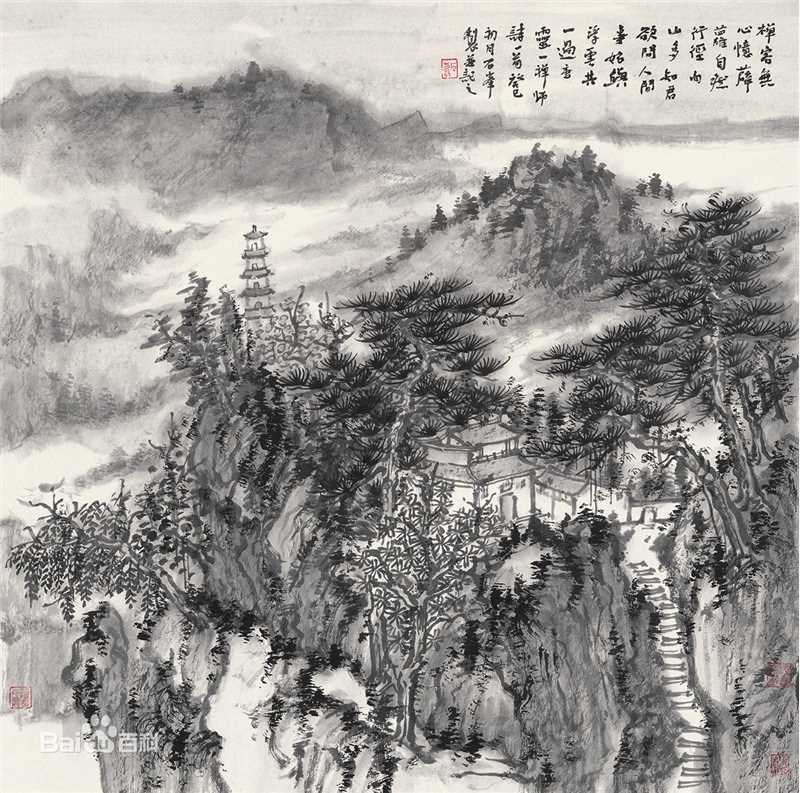 禪客無
心憶薜
蘿自然
行徑向
山多知君
欲問人間
事始與
浮雲共
一過唐
靈一禪師
詩一首癸巳
初月石峯
製並記之
Baidu百科